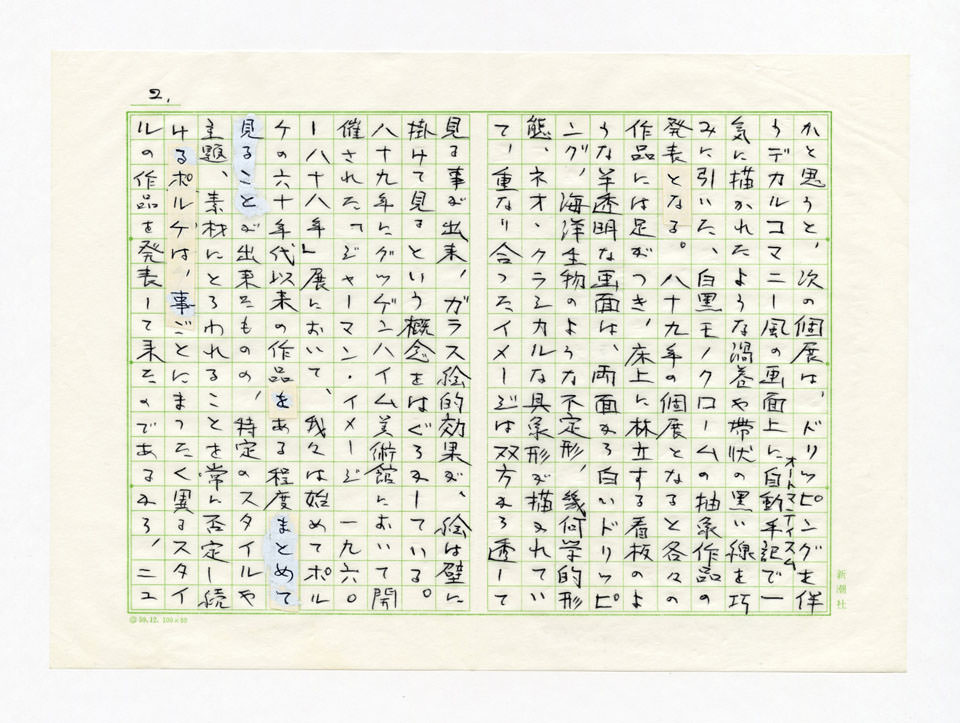 2.
かと思うと、次の個展は、ドリッピングを伴
うデカルコマニー風の画面上に自動手記で一
オートマティスム
気に描かれたような渦巻や帯状の黒い線を巧
みに引いた、白黒モノクロームの抽象作品の
発表となる。八十九年の個展となると各々の
作品には足がつき、床上に林立する看板のよ
うな半透明な画面は、両面から白いドリッピ
ング、海洋生物のような不定形、幾何学的形
態、ネオ・クラシカルな具象形が描かれてい
て、重なり合ったイメージは双方から透して
見る事が出来、ガラス絵的効果が、絵は壁に
掛けて見るという概念をはぐらかしている。
八十九年にグッゲンハイム美術館において開
催された『ジャーマン・イメージ 一九六〇
ー八十八年』展において、我々は始めてポル
ケの六十年代以来の作品をある程度まとめて
見ることが出来たものの、特定のスタイルや
主題、素材にとらわれることを常に否定し続
けるポルケは、事ごとにまったく異るスタイ
ルの作品を発表して来たのであるから、ニュ
新潮社
59.12. 100×